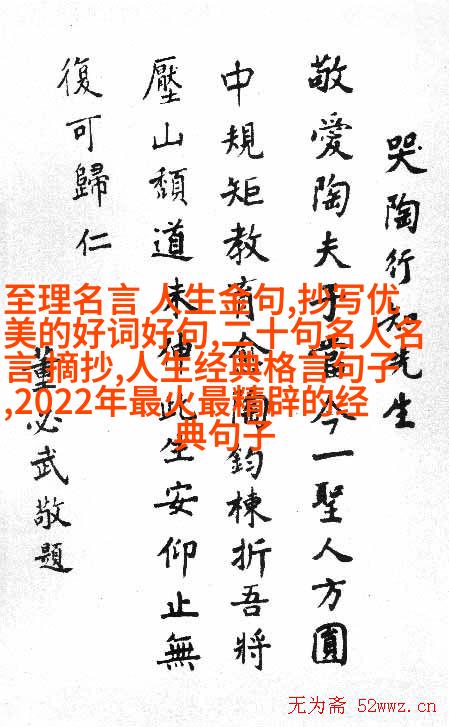 哭陶行知先生
敬愛陶夫子當今一聖人方圓
中規矩教育陶鈞棟折吾將
壓山頹道未伸此生安仰止無
復可歸仁
董必武敬題
至理名言 人生金句,抄写优
美的好词好句,二十句名人名
言 摘抄,人生经典格言句子
,2022年最火最精辟的经
典句子
无为斋 52wwz.cn